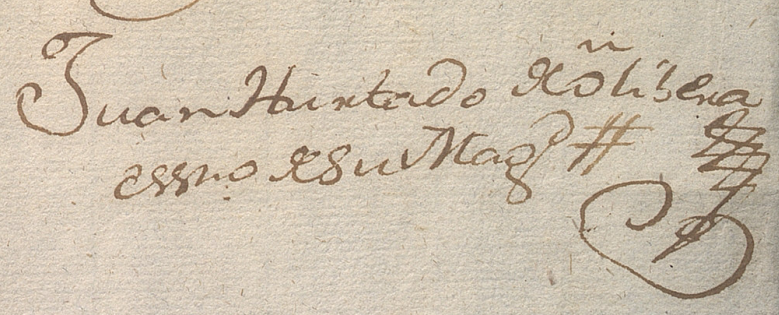 Juan Hurtado de olibera
essno de su Magd